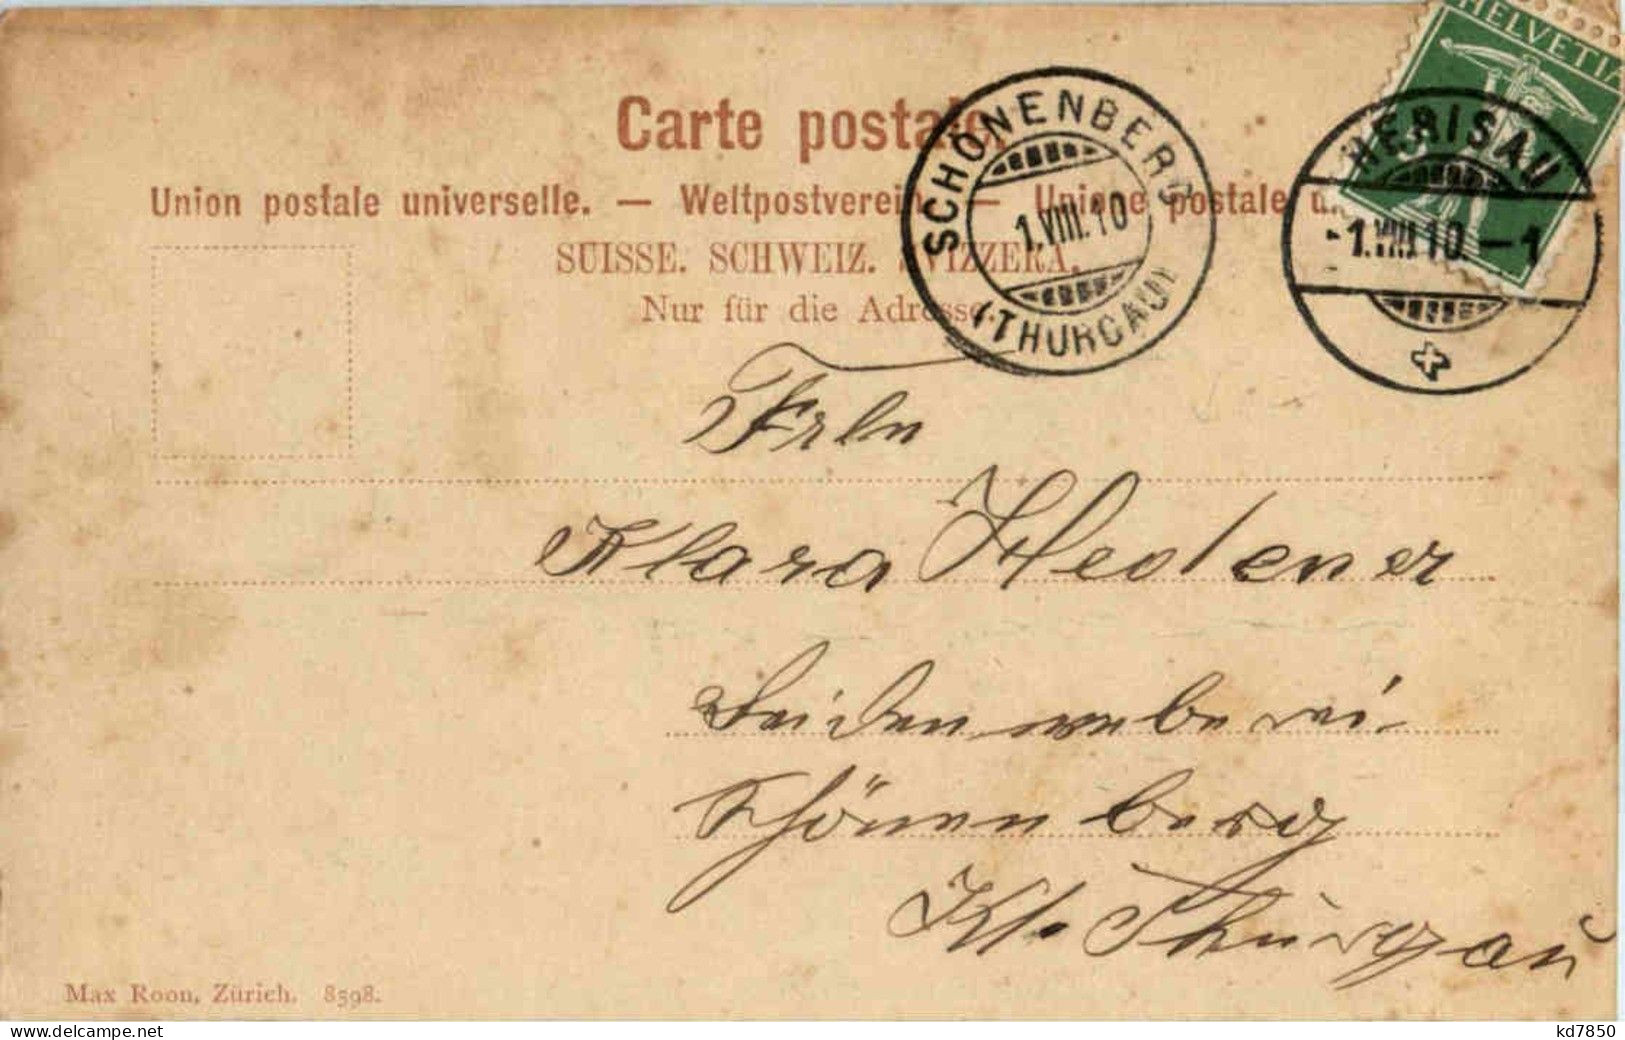 HELVETIA
Carte postale.
SCHÖNENBERG
(THURGAU)
1.VIII.10
HERISAU
1.VIII.10.–1
Union postale universelle. — Weltpostverein. — Unione postale
SUISSE. SCHWEIZ. SVIZZERA.
Nur für die Adresse.
Frln
Klara
Seidenweberei
Schönenberg
Kt. Thurgau
Max Roon, Zürich. 8598.
kd7850